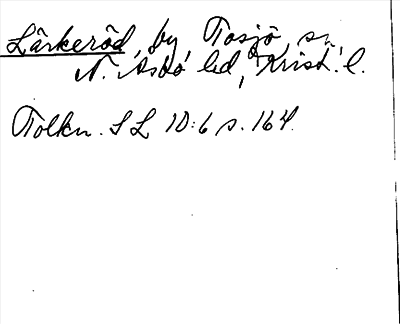 Lärkeröd, by, Tosjö sn
N. Åsbo hd, Krist. l.
Tolkn. SL 10:6 s. 164.